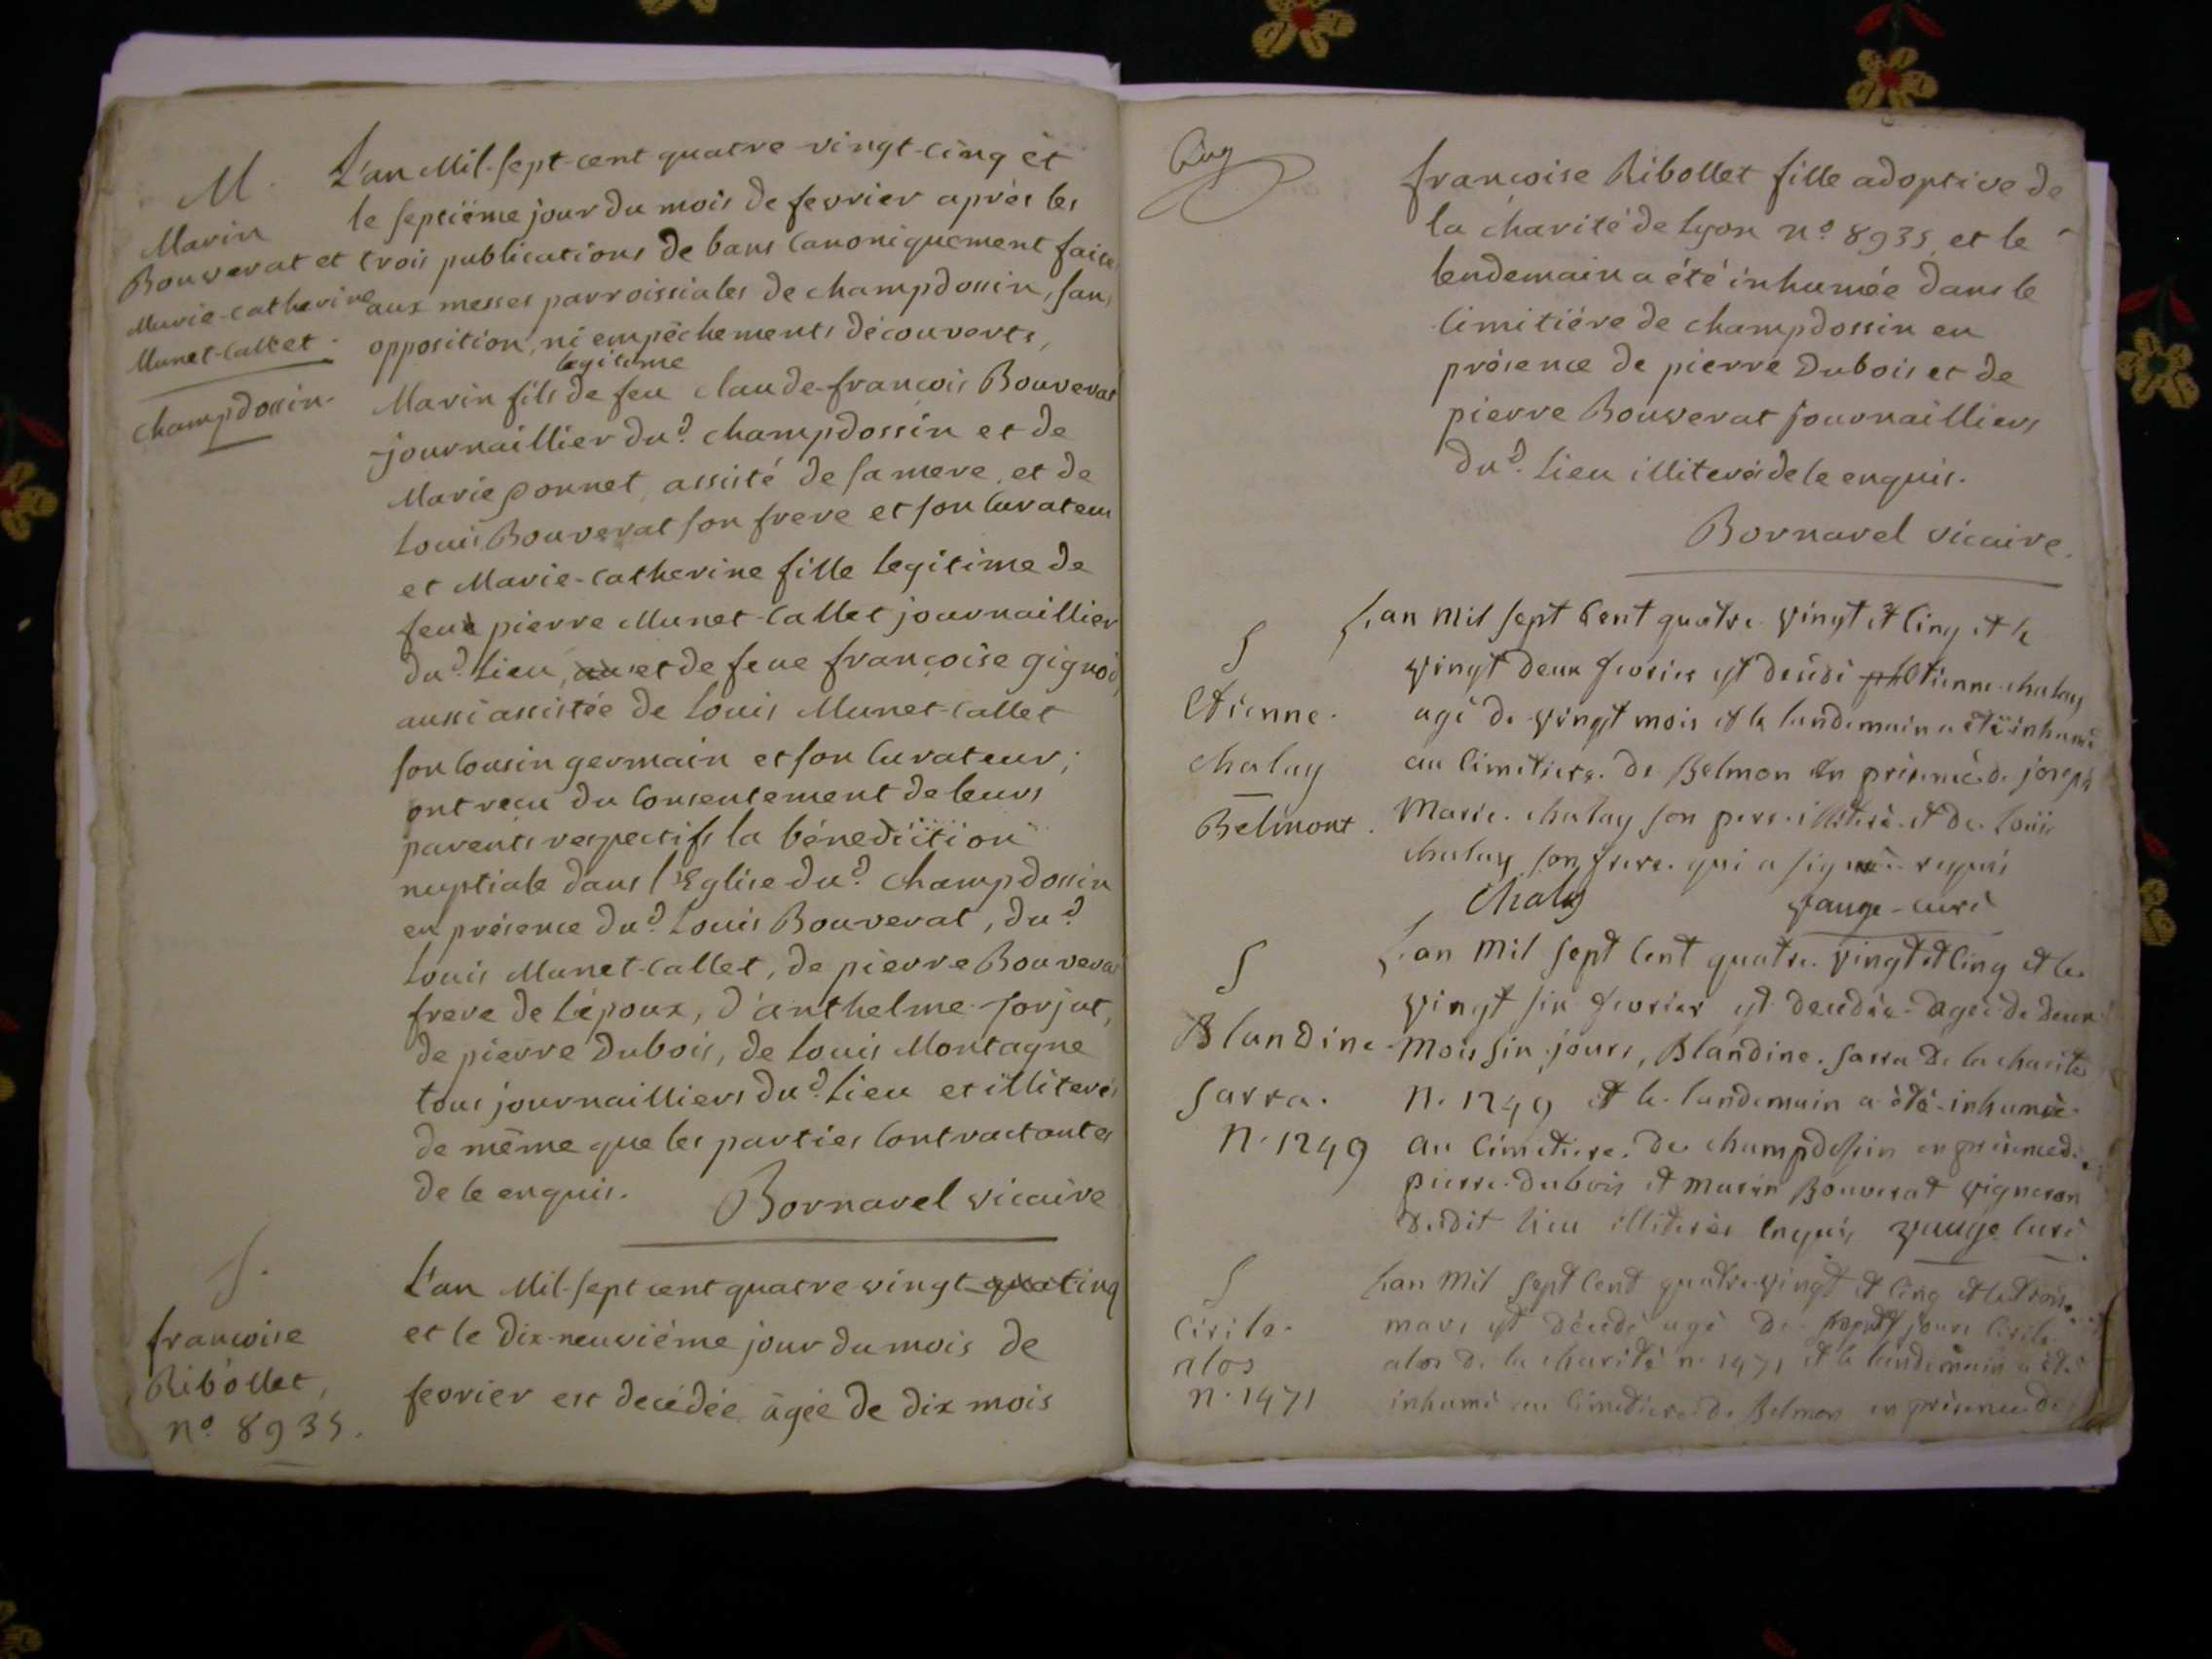 M.
Marin
Bouverat et
Marie-catherine
Munet-Callet.
champdossin.
L'an Mil-sept-cent quatre-vingt-cinq et
le septiéme jour du mois de fevrier aprés les
trois publications de bans Canoniquement faites
aux messes parroissiales de champdossin, sans
opposition, ni empêchements découverts,
legitime
Marin fils de feu claude-françois Bouverat
journaillier du.d champdossin et de
Marie ponnet, assisté de sa mere, et de
Louis Bouverat son frere et son Curateur
et Marie-catherine fille legitime de
feu pierre Munet-Callet journaillier
du.d Lieu, et de feue françoise gignod,
aussi assistée de Louis Munet-Callet
son Cousin germain et son Curateur;
ont reçu du Consentement de leurs
parents respectifs la bénediction
nuptiale dans l'Eglise du.d champdossin
en présence du.d Louis Bouverat, du.d
Louis Munet-Callet, de pierre Bouverat
frere de L'époux, d'anthelme sorjut,
de pierre Dubois, de Louis Montagne
tous journailliers du.d Lieu et illiterés
de même que les parties Contractantes
de ce enquis. Bornarel vicaire
S.
francoise
Ribollet,
n.o 8935.
L'an Mil-sept cent quatre vingt cinq
et le Dix-neuviéme jour du mois de
fevrier est decédée âgée de dix mois
Cinq
francoise Ribollet fille adoptive de
la charité de Lyon n.o 8935, et le
lendemain a été inhumée dans le
Cimitiére de champdossin en
présence de pierre Dubois et de
pierre Bouverat journailliers
du.d Lieu illiterés de ce enquis.
Bornarel vicaire.
S
Etienne.
chalay
Belmont.
L'an mil sept Cent quatre vingt et Cinq et le
vingt deux fevrier est décédé Etienne chalay
agé de vingt mois et le landemain a été inhumé
au Cimetiere de Belmon En présence de joseph
Marie chalay son pere illiteré et de Louis
chalay son frere qui a signé requis
Chaly vauge-curé
S
Blandine
Sarra.
N. 1249
L'an mil sept Cent quatre vingt et Cinq et le
vingt six fevrier est decedée agée de deux
mois six jours, Blandine Sarra de la charité
N. 1249 et le landemain a été inhumée
au Cimetiere de champdossin en présence de
pierre dubois et marin Bouverat vigneron
dudit lieu illiterés Enquis, vauge Curé
S
Cirile.
alos
n. 1471
L'an mil sept Cent quatre vingt et Cinq et le trois
mars est décédé agé de jours Cirile
alos de la charité n. 1471 et le landemain a été
inhumé au Cimetiere de Belmon en présence de